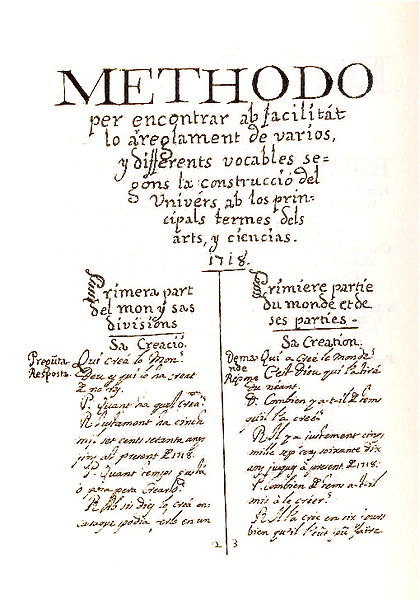 METHODO
per encontrar ab facilitát
lo áreglament de varios,
y differents vocables se=
gons la construcció del
Univers, ab los prin-
cipals termes dels
arts, y ciencias.
1718.
Primera part
del mon y sas
divisions
Sa Creació.
Pregūta Qui creá lo Mon?
Resposta. Deu es qui lo ha creat
de no res.
P. Quant ha que creá?
R. justament ha cinch
mi. set cents setanta anys
fins at present de 1718.
P. Quant temps
ó para pera Crearlo?
R.
podia, en un
2
Primiere partie
du monde et de
ses parties.
Sa Creation.
Deman Qui a Creé le monde?
de Reponse C'est Dieu qui l'a tiré
du néant.
D. Combien y a-t-il de tems
qu'il l'a creé?
R. Il y a justement cinq
mille sep cens soixante dix
ans jusqu'a present de 1718.
P. Combien de tems a-t-il
mis à le créer?
R. Il l'a crée en six jours
bien qu'il l'eût pû faire
3